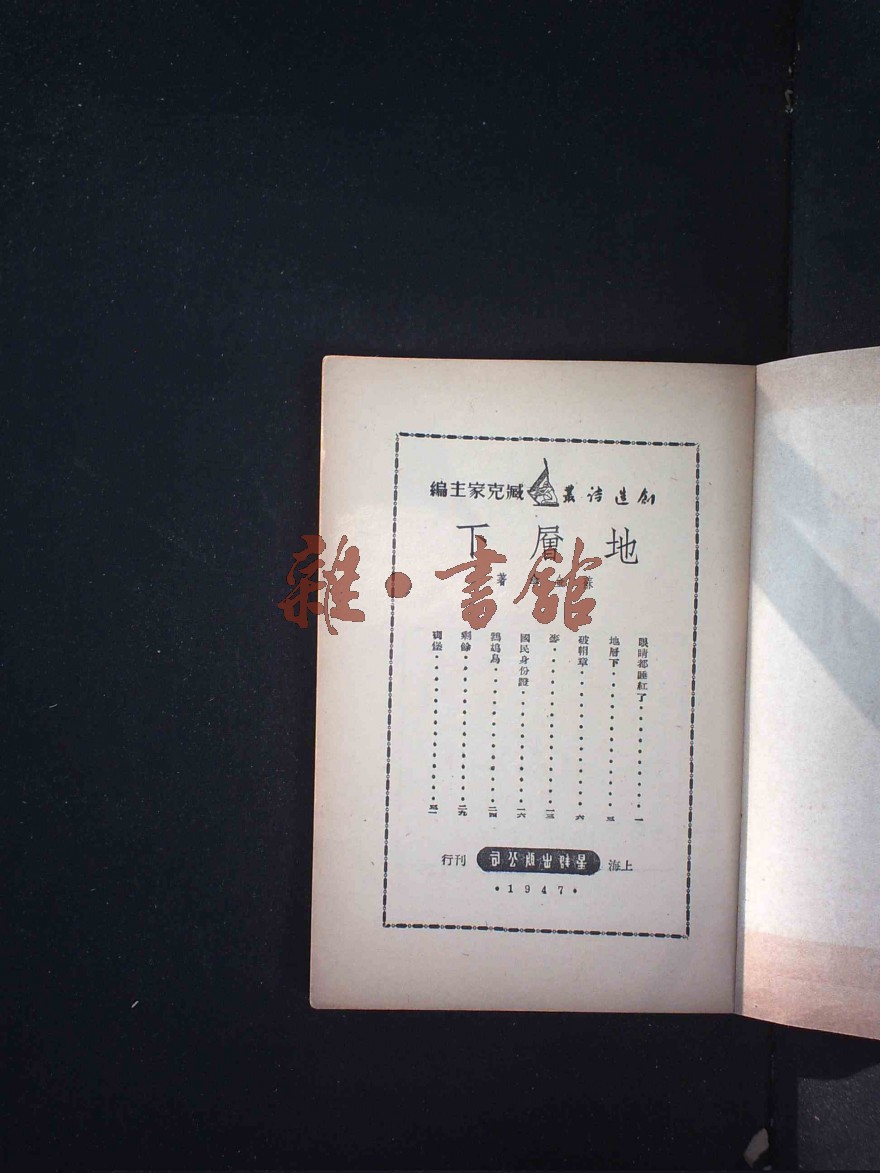 創造詩叢 臧克家主編
地層下
蘇金傘 著
眼睛都睡紅了 一
地層下 三
破帽章 六
一三
國民身份證 一六
鵓鴣鳥 二四
剩餘 二九
碉堡 三一
上海 星群出版公司 刊行
·1947·
雜·書館